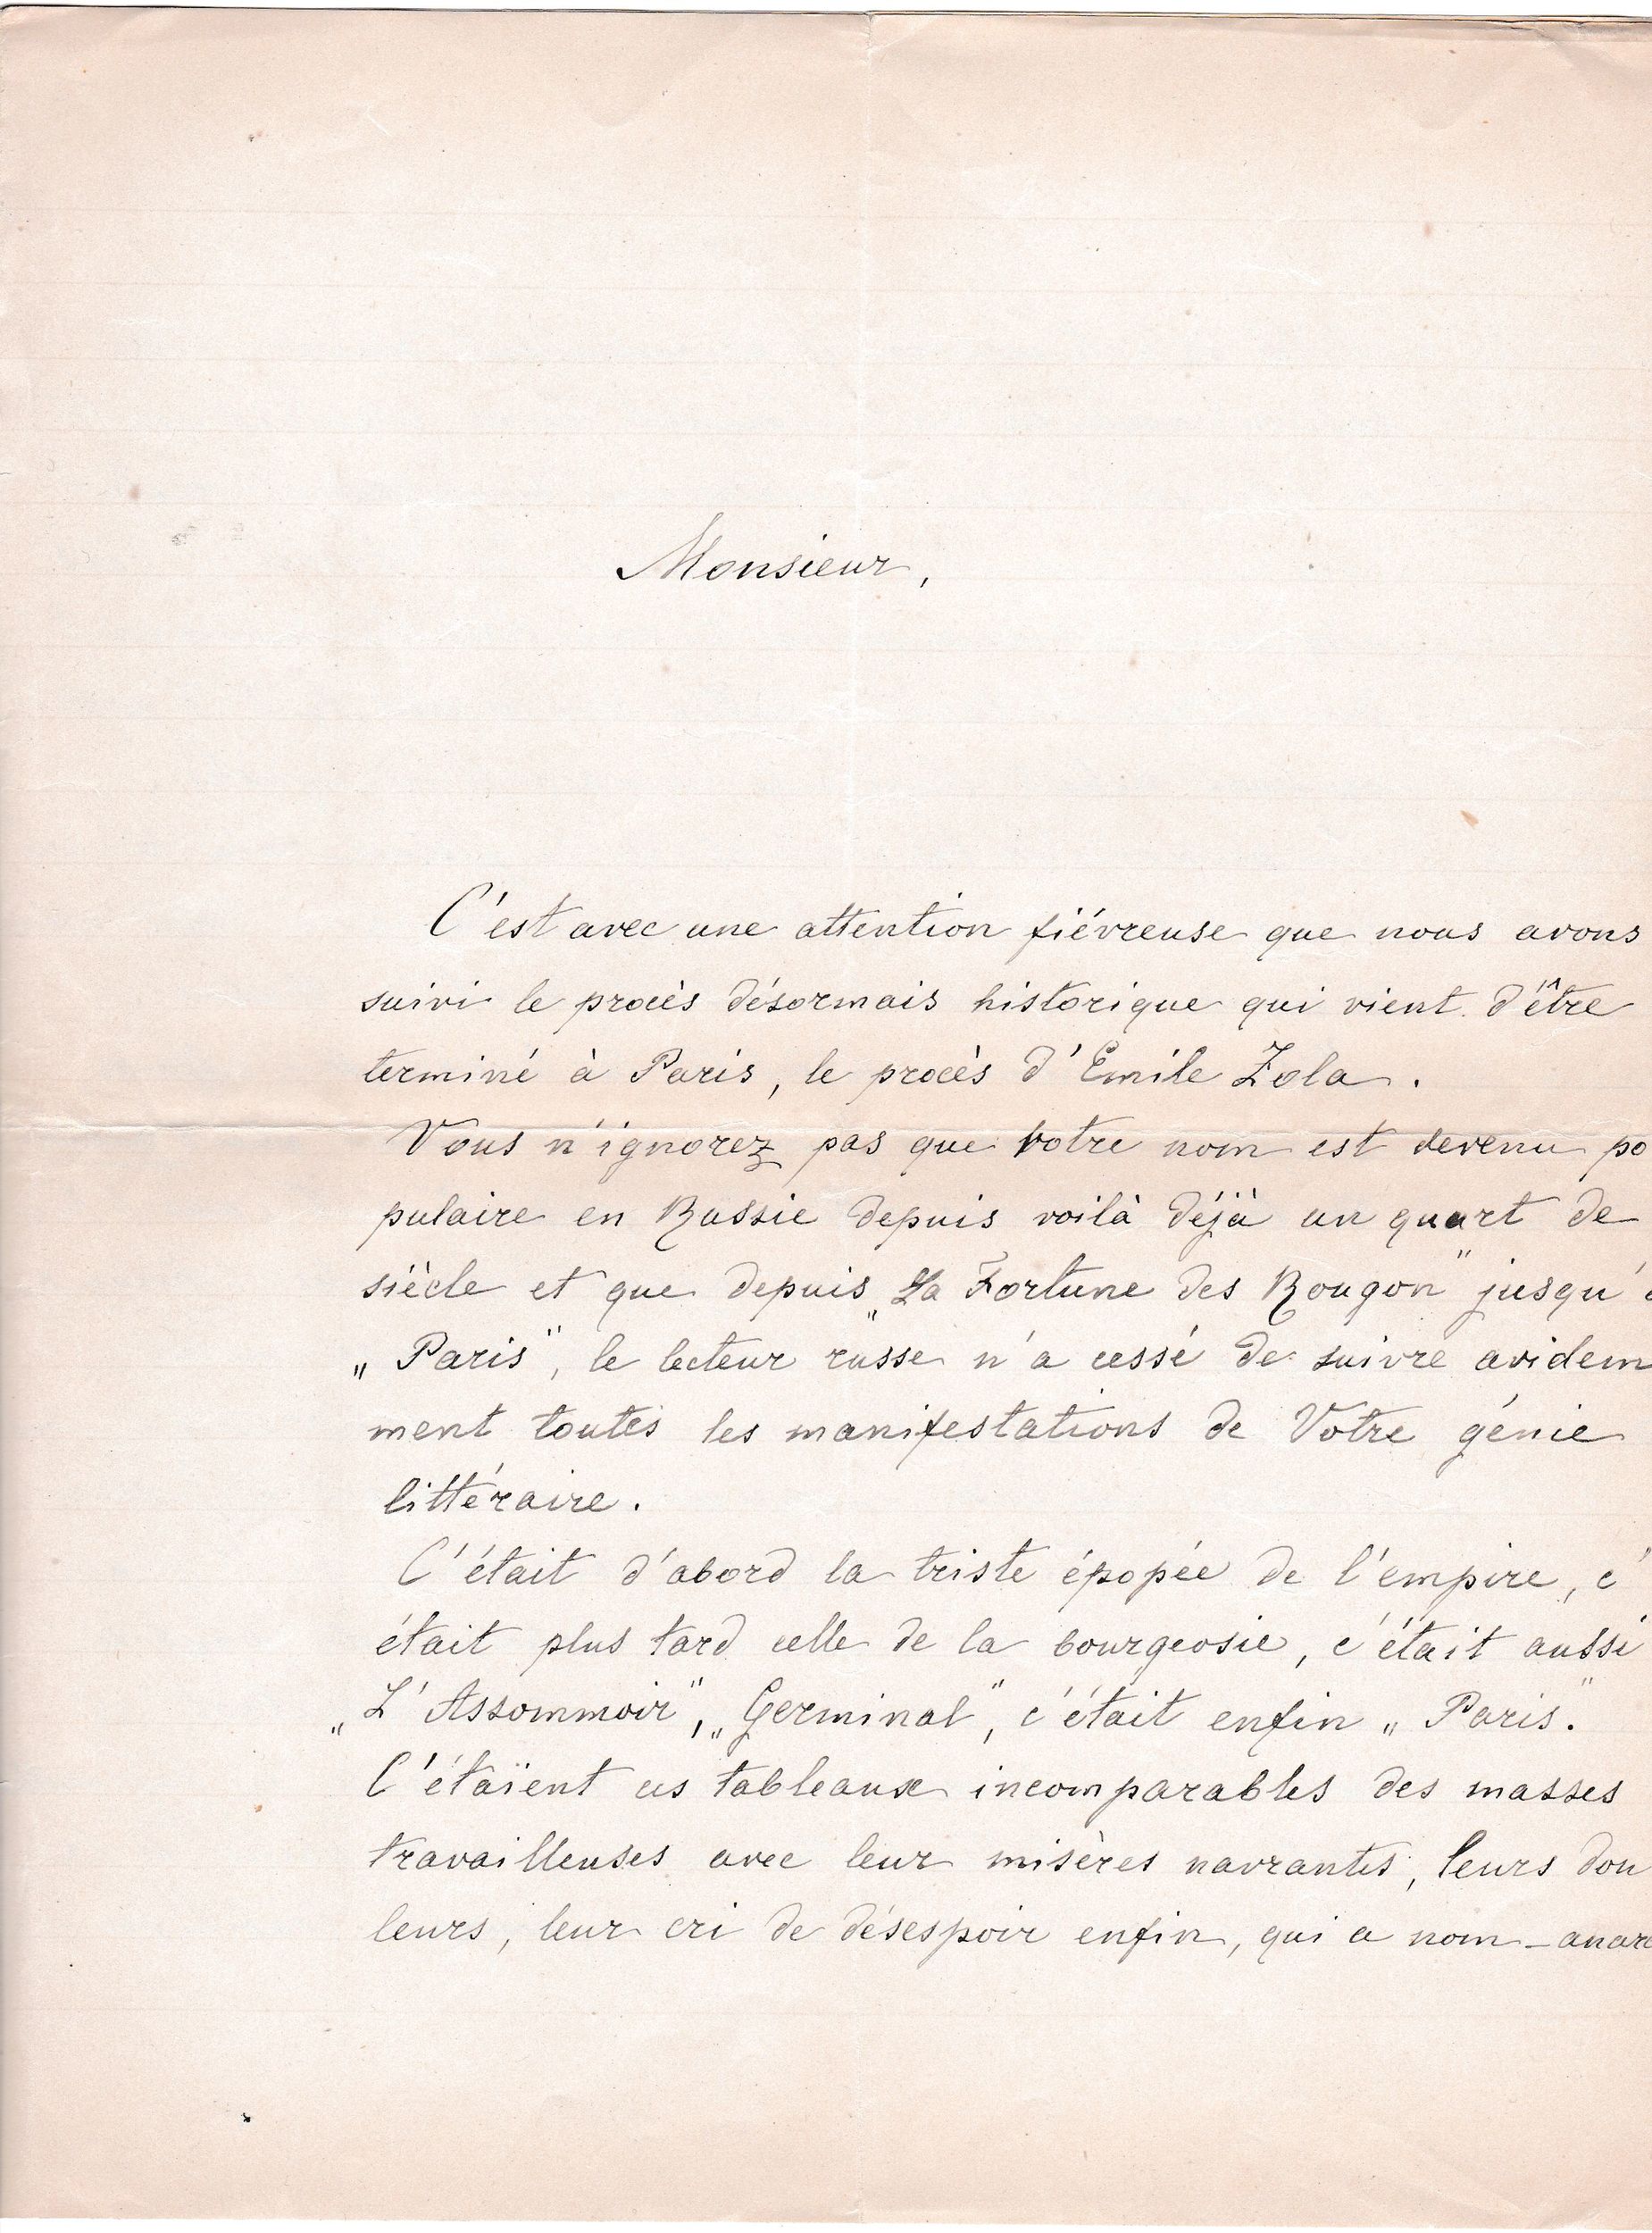 Monsieur,
C'est avec une attention fiévreuse que nous avons
suivi le procès désormais historique qui vient d'être
terminé à Paris, le procès d'Emile Zola.
Vous n'ignorez pas que Votre nom est devenu po
pulaire en Russie depuis voilà déjà un quart de
siècle et que depuis „La Fortune des Rougon" jusqu'
„Paris", le lecteur russe n'a cessé de suivre avidem
ment toutes les manifestations de Votre génie
littéraire.
C'était d'abord la triste épopée de l'empire, c'
était plus tard celle de la bourgeosie, c'était aussi
„L'Assommoir", „Germinal", c'était enfin „Paris".
C'étaïent ces tableaux incomparables des masses
travailleuses avec leur misères navrantes, leurs dou
leurs, leur cri de désespoir enfin, qui a nom – anar